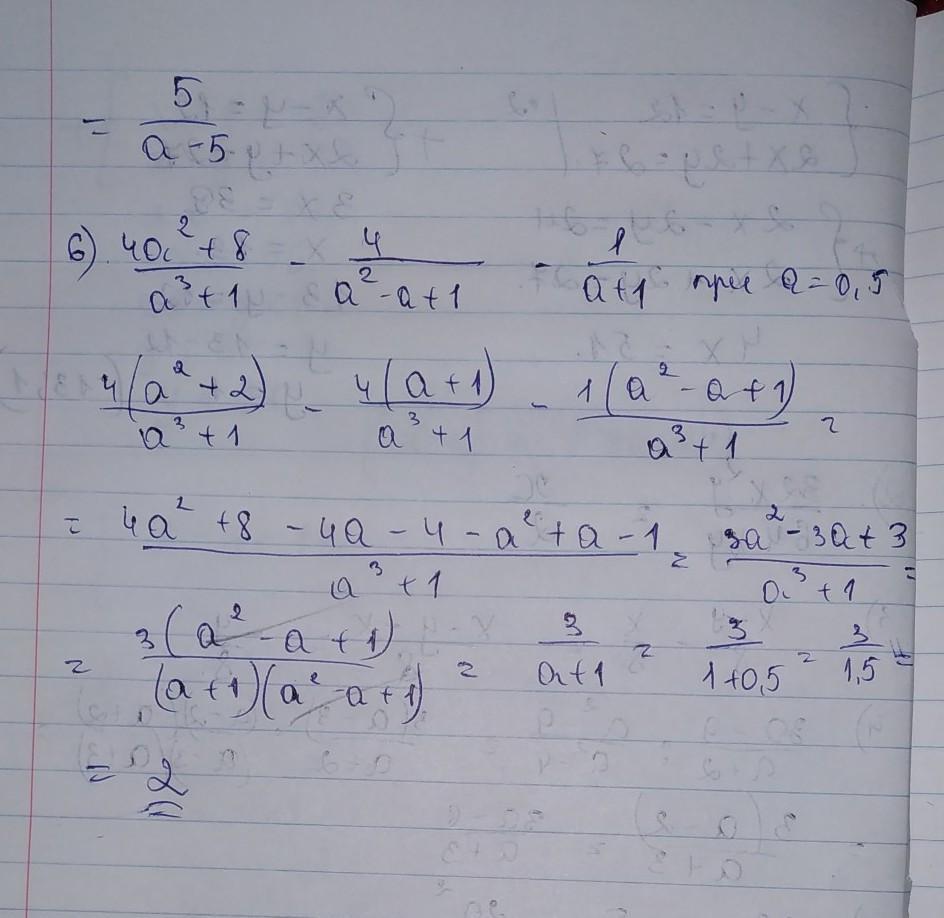 = 5/(a-5)
6) (4a² + 8)/(a³ + 1) - 4/(a² - a + 1) - 1/(a+1) при a = 0,5
4(a² + 2)/(a³ + 1) - 4(a + 1)/(a³ + 1) - 1(a² - a + 1)/(a³ + 1) =
= (4a² + 8 - 4a - 4 - a² + a - 1)/(a³ + 1) = (3a² - 3a + 3)/(a³ + 1) =
= 3(a² - a + 1)/((a + 1)(a² - a + 1)) = 3/(a+1) = 3/(1+0,5) = 3/1,5 =
= 2